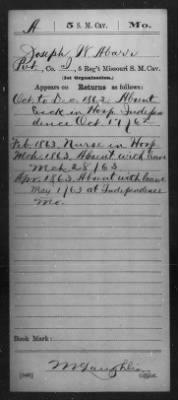 A 5 S. M. Cav. Mo.
Joseph W Abar
Pvt, Co. , 5 Reg't Missouri S. M. Cav.
(1st Organization.)
Appears on Returns as follows:
Oct to Dec 1862 Absent
Sick in Hosp Indepen
dence Oct 17/62
Feb 1863. Nurse in Hosp
Mch 1863. Absent with leave
Mch 28/63
Apr. 1863. Absent with leave
May 1/63 at Independence
Mo.
Book Mark:
McLaughlin